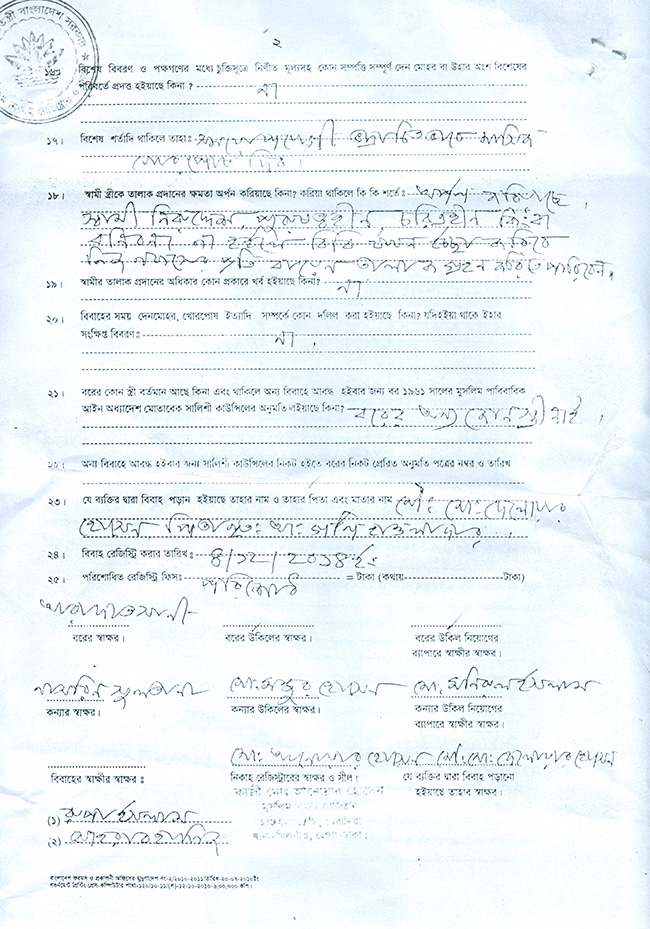 ২
১৬। বিশেষ বিবরণ ও পক্ষগণের মধ্যে চুক্তিসূত্রে নির্ণীত মূল্যসহ কোন সম্পত্তি সম্পূর্ণ দেন মোহর বা উহার অংশ বিশেষের
পরিবর্তে প্রদত্ত হইয়াছে কিনা ? না
১৭। বিশেষ শর্তাদি থাকিলে তাহাঃ ভদ্রোচিতভাবে মাসিক
খোরপোষ দিবে।
১৮। স্বামী স্ত্রীকে তালাক প্রদানের ক্ষমতা অর্পন করিয়াছে কিনা? করিয়া থাকিলে কি কি শর্তেঃ অর্পন করিয়াছে
স্বামী নিরুদ্দেশ, পুরুষত্বহীন, চরিত্রহীন কিংবা
বনিবনা না হইলে বিবি যখন ইচ্ছা করিবে
নিজ নফসের প্রতি বায়েন তালাক গ্রহন করিতে পারিবেন।
১৯। স্বামীর তালাক প্রদানের অধিকার কোন প্রকারে খর্ব হইয়াছে কিনা? না
২০। বিবাহের সময় দেনমোহর, খোরপোষ ইত্যাদি সম্পর্কে কোন দলিল করা হইয়াছে কিনা? যদিহইয়া থাকে ইহার
সংক্ষিপ্ত বিবরণঃ না।
২১। বরের কোন স্ত্রী বর্তমান আছে কিনা এবং থাকিলে অন্য বিবাহে আবদ্ধ হইবার জন্য বর ১৯৬১ সালের মুসলিম পারিবারিক
আইন অধ্যাদেশ মোতাবেক সালিশী কাউন্সিলের অনুমতি লইয়াছে কিনা? বরের অন্য কোন স্ত্রী নাই।
২২। অন্য বিবাহে আবদ্ধ হইবার জন্য সালিশী কাউন্সিলের নিকট হইতে বরের নিকট প্রেরিত অনুমতি পত্রের নম্বর ও তারিখ
২৩। যে ব্যক্তির দ্বারা বিবাহ পড়ান হইয়াছে তাহার নাম ও তাহার পিতা এবং মাতার নাম মৌঃ মোঃ দেলোয়ার
হোসেন পিতা মৃতঃ আঃ গনি হাওলাদার।
২৪। বিবাহ রেজিস্ট্রি করার তারিখঃ ৪/১২/২০১৪ইং
২৫। পরিশোধিত রেজিস্ট্রি ফিসঃ পরিশোধ = টাকা (কথায় টাকা)
বরের স্বাক্ষর। বরের উকিলের স্বাক্ষর। বরের উকিল নিয়োগের
ব্যাপারে স্বাক্ষীর স্বাক্ষর।
নাসরিন সুলতানা মোঃ মঞ্জুর হোসেন মোঃ মনিরুল ইসলাম
কন্যার স্বাক্ষর। কন্যার উকিলের স্বাক্ষর। কন্যার উকিল নিয়োগের
ব্যাপারে স্বাক্ষীর স্বাক্ষর।
মোঃ আনোয়ার হোসেন মৌঃ মোঃ দেলোয়ার হোসেন
বিবাহের স্বাক্ষীর স্বাক্ষর ঃ নিকাহ রেজিস্ট্রারের স্বাক্ষর ও সীল। যে ব্যক্তির দ্বারা বিবাহ পড়ানো
হইয়াছে তাহার স্বাক্ষর।
কাজী মোঃ আনোয়ার হোসেন
(১) রুপা ইসলাম
(২)